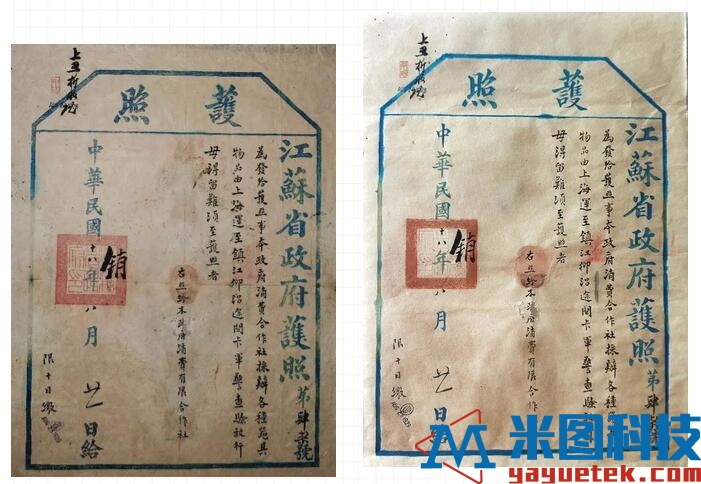 護照
江蘇省政府護照
為發給護照事本政府消費合作社採辦各種器具
物品由上海運至鎮江仰沿途關卡軍警查驗放行
毋得留難須至護照者
右照給本政府消費有限合作社
中華民國十八年八月日給
銷
限十日繳
護照
江蘇省政府護照
為發給護照事本政府消費合作社採辦各種
物品由上海運至鎮江仰沿途關卡軍警查驗
毋得留難須至護照者
右照給本政府消費有限合作
中華民國十八年八月日給
銷
限十日繳
米图科技
yayuetek.com